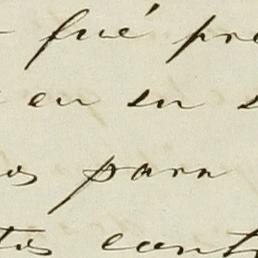 fué pre
en su s
os para
tos cont